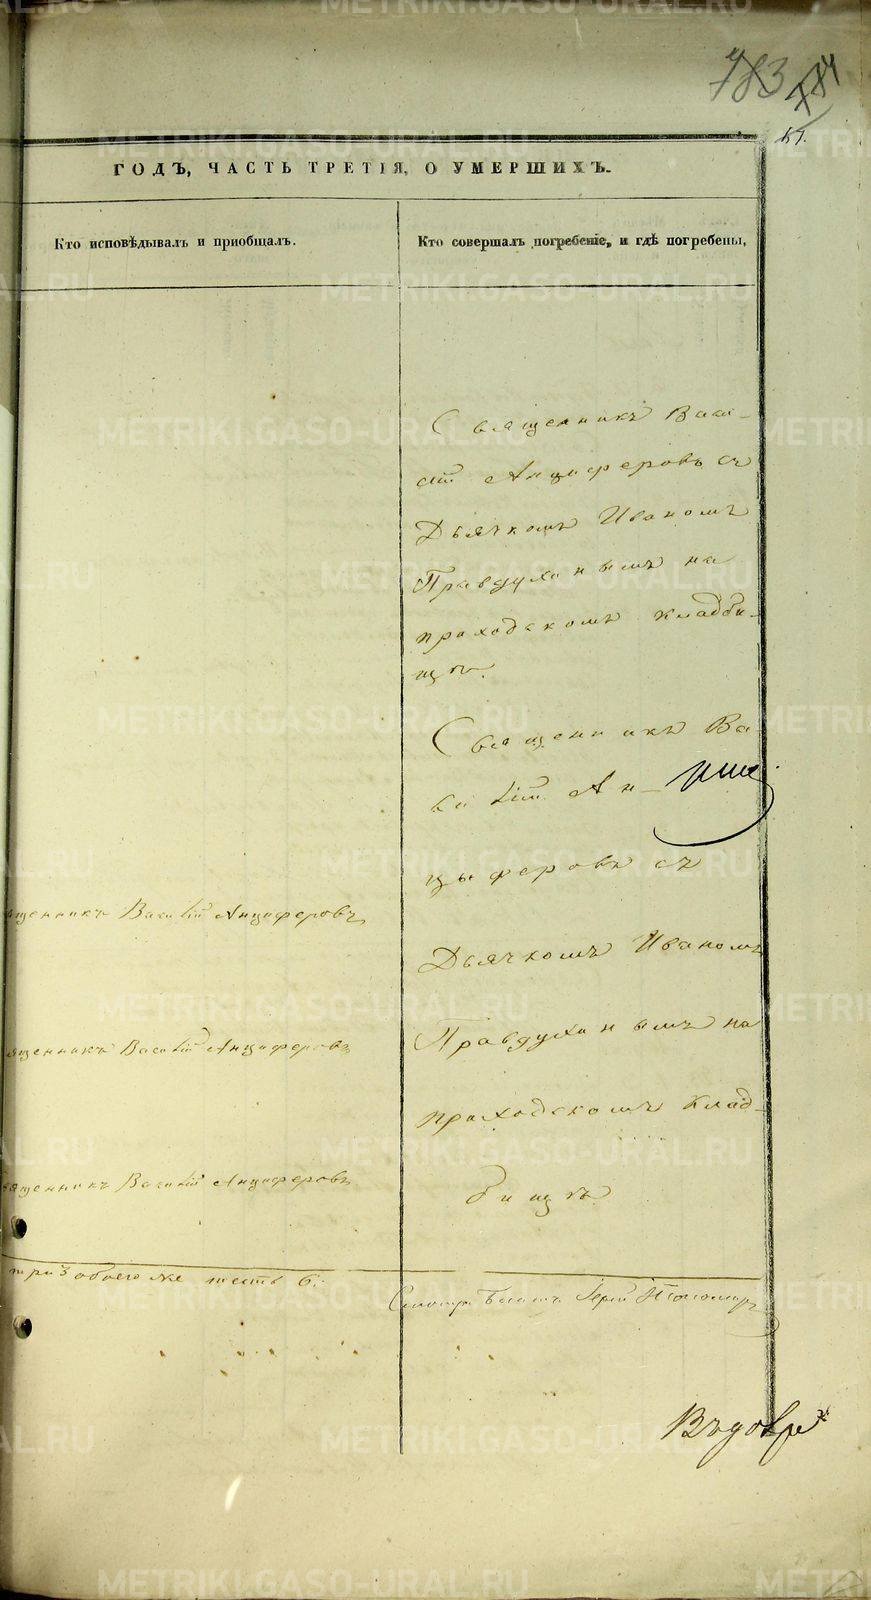 783 784
67.
ГОДЪ, ЧАСТЬ ТРЕТІЯ, О УМЕРШИХЪ.
Кто исповѣдывалъ и пріобщалъ.
Кто совершалъ погребеніе, и гдѣ погребены,
Священникъ Васи-
лій Анциферовъ съ
Дьячкомъ Иваномъ
Правдухинымъ на
приходскомъ кладби-
щѣ.
Священникъ Ва
силій Ан-
цыферовъ съ
Дьячкомъ Иваномъ
Правдухинымъ на
приходскомъ клад-
бищѣ
ященникъ Василій Анциферовъ
ященникъ Василій Анциферовъ
ященникъ Василій Анциферовъ
три 3 обоего же шесть 6.
METRIKI.GASO-URAL.RU